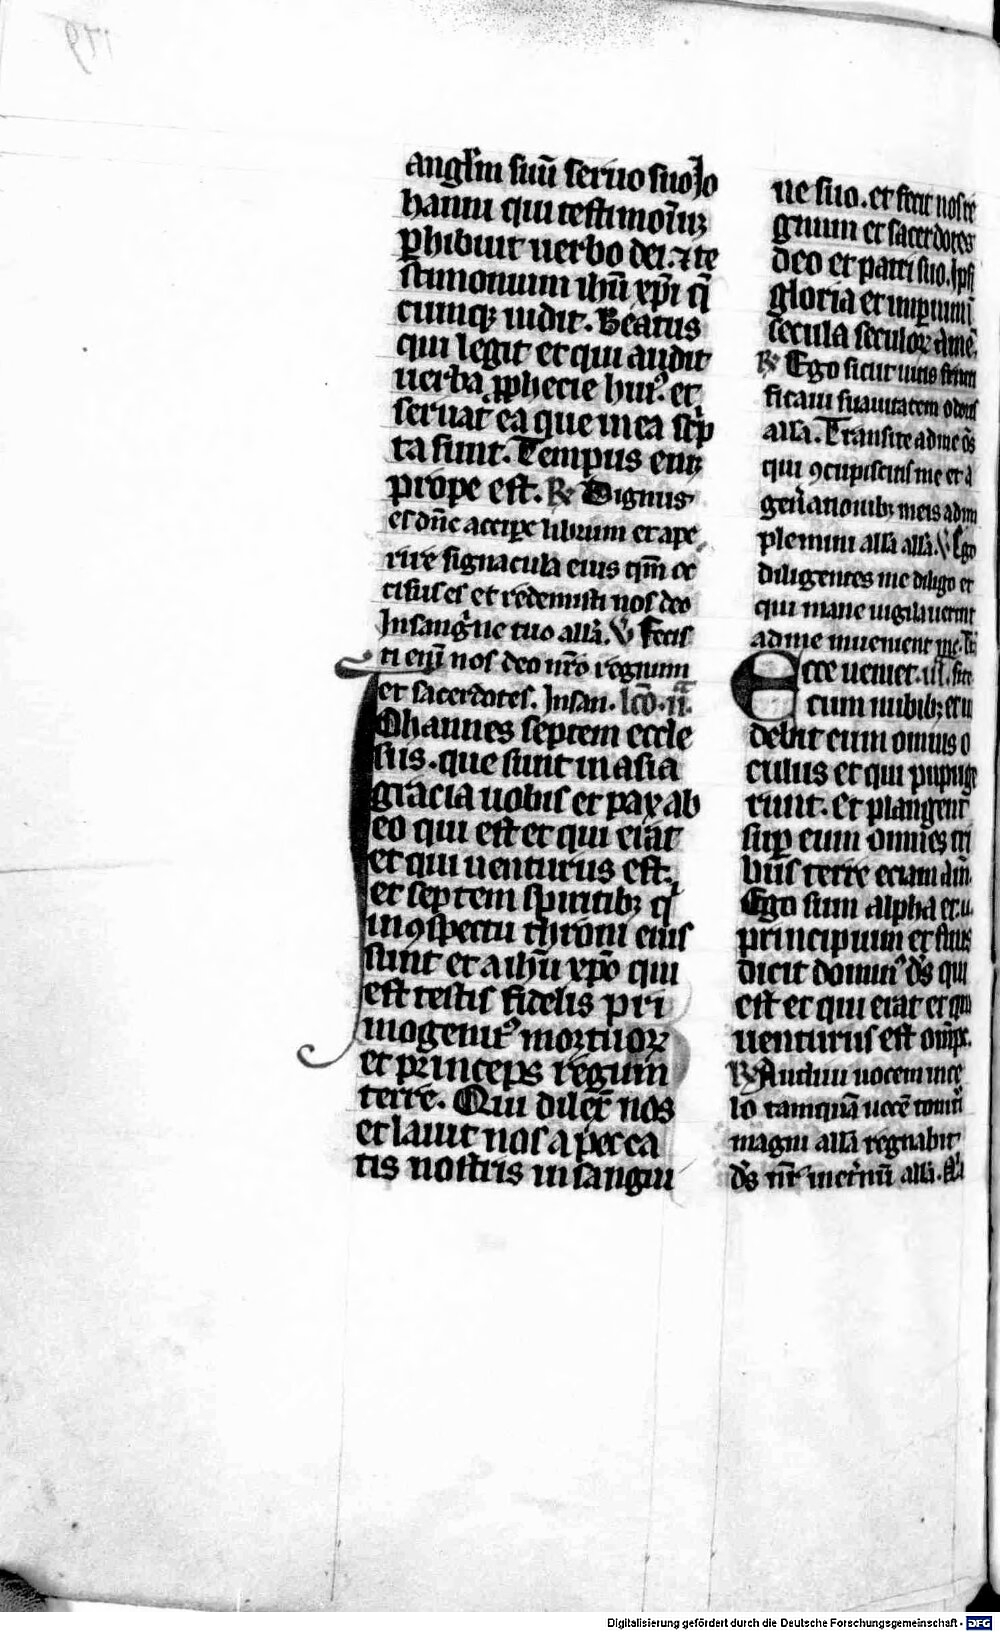 angłm suū seruo suo Jo
hanni qui testimoniuꝫ
ꝑhibuit uerbo dei ⁊ te
stimonium ihū xp̄i q̄
cumqꝫ uidit. Beatus
qui legit et qui audit
uerba ꝓphecie huiꝰ et
seruat ea que in ea sc̄p
ta sunt. Tempus eniꝫ
prope est. ℟ Dignus
es dn̄e accipe librum et ape
rire signacula eius qm̄ oc
cisus es et redemisti nos deo
In sangῑne tuo allā. ℣ Fecis
ti enī nos deo nr̄o regnum
et sacerdotes. In san. lc̄o .ii.
Johannes septem eccle
siis. que sunt in asia
gracia uobis et pax ab
eo qui est et qui erat
et qui uenturus est.
et septem spiritibꝫ q̄
in ꝯspectu throni eius
sunt et a ihū xp̄o qui
est testis fidelis pri
mogenitꝰ mortuoꝝ
et princeps regum
terre. Qui dilex̄ nos
et lauit nos a pecca
tis nostris in sangui
ne suo. et fecit nos re
gnum et sacerdotes
deo et patri suo. Ipsi
gloria et imperium ī
secula seculoꝝ amē.
℟ Ego sicut uitis fructi
ficaui suauitatem odoris
allā. Transite ad me oēs
qui ꝯcupiscitis me et a
gen̄ationibꝫ meis adim
plemini allā allā. ℣ Ego
diligentes me diligo et
qui mane uigilauerint
ad me inuenient me.
Ecce ueniet
cum nubibꝫ et ui
debit eum omnis o
culus et qui pupuge
runt. et plangent
suꝑ eum omnes tri
bus terre eciam am̄.
Ego sum alpha et .ω.
principium et finis
dicit dominꝰ dꝰs qui
est et qui erat et qui
uenturus est omīps.
℟ Audiui uocem in ce
lo tamquā uocē tonit̄
magni allā regnabit
dꝰs nr̄ in et̄nū allā.
Digitalisierung gefördert durch die Deutsche Forschungsgemeinschaft - DFG